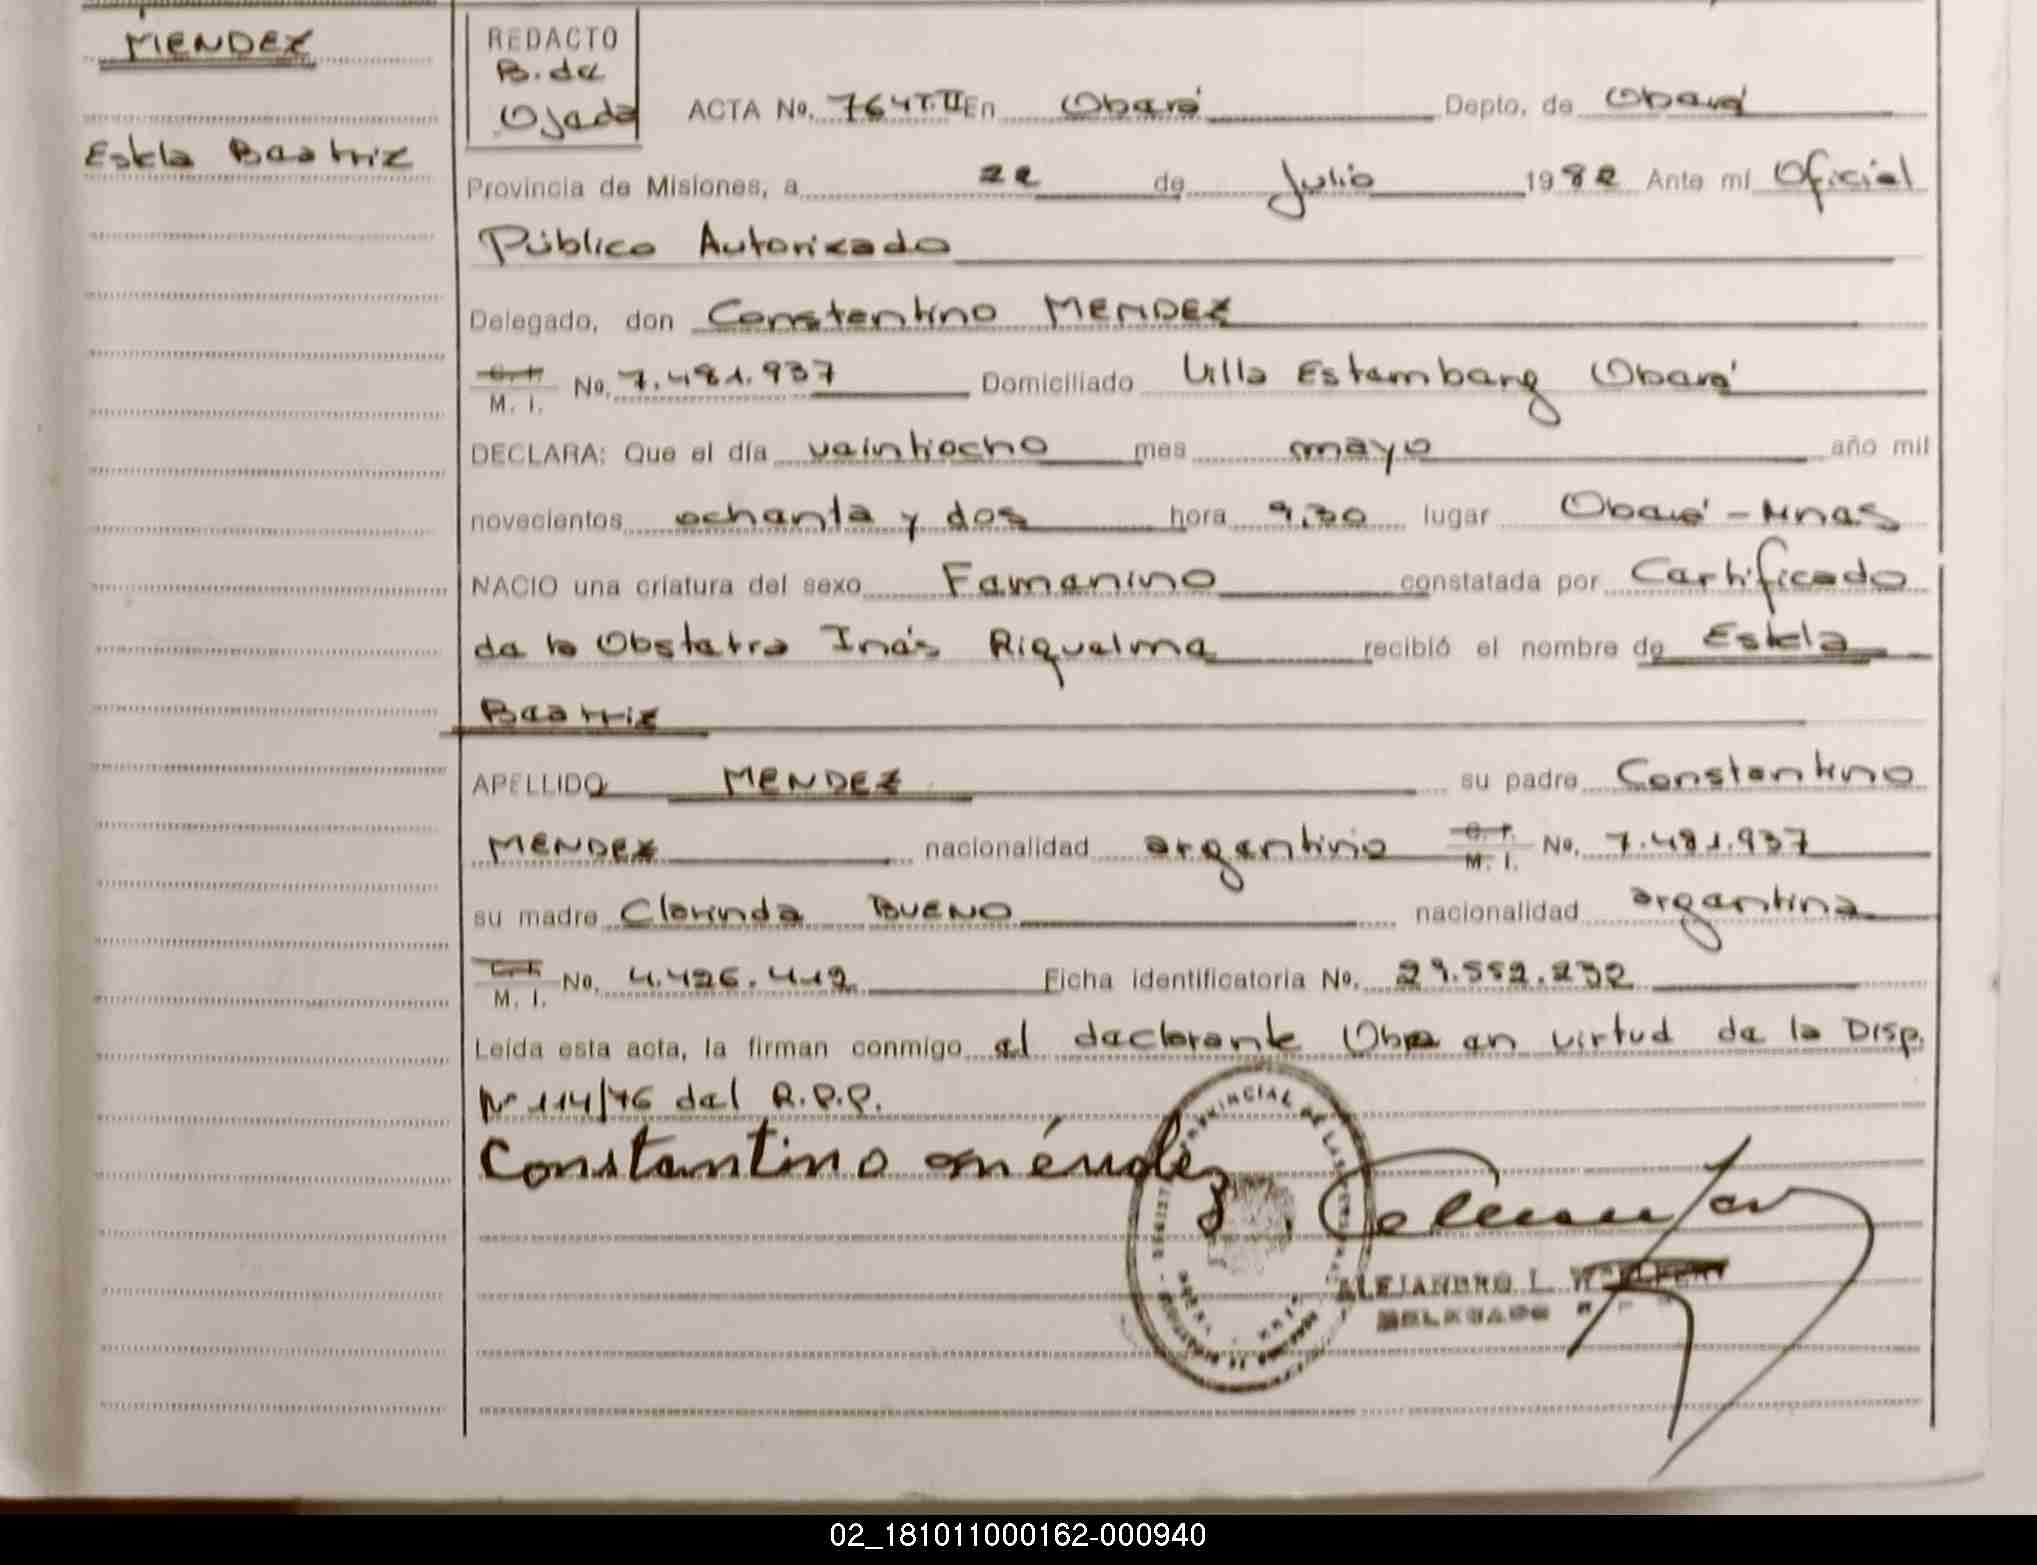 MENDEZ
Estela Beatriz
REDACTO
B. de
Ojeda
ACTA No. 764 T.II En Oberá Depto. de Oberá
Provincia de Misiones, a 22 de Julio 1982 Ante mí Oficial
Público Autorizado
Delegado, don Constantino MENDEZ
C. I. M. I. No. 7.481.937 Domiciliado Villa Estambang Oberá
DECLARA: Que el día veintiocho mes mayo año mil
novecientos ochenta y dos hora 9,30 lugar Oberá - Mnes
NACIO una criatura del sexo Femenino constatada por Certificado
de la Obstetra Inés Riquelme recibió el nombre de Estela
Beatriz
APELLIDO MENDEZ su padre Constantino
MENDEZ nacionalidad argentino C. I. M. I. No. 7.481.937
su madre Clorinda BUENO nacionalidad argentina
C. I. M. I. No. 4.426.419 Ficha identificatoria No. 29.552.232
Leída esta acta, la firman conmigo el declarante Obra en virtud de la Disp.
Nº 114/76 del R.P.P.
Constantino méndez
PROVINCIAL DE LAS
ALEJANDRO L.
DELEGADO
02_181011000162-000940